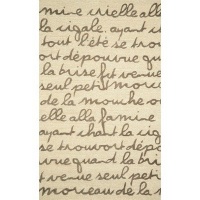 mine vielle alle
la cigale. ayant c
tout l'été se trou
ort dépourvue qu
la brise fut venue
seul petit morceau
de la mouche ou
elle alla famine
ayant chant la cig
se trouvort dépo
vue quand la bris
t venue seul peti
morceau de la m